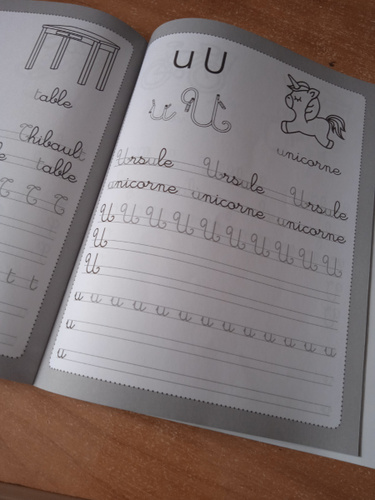 table
Thibault
table
T T T
t t
u U
u U
unicorne
Ursule Ursule Ursule
unicorne unicorne unicorne
U U U U U U U U U U
U
U
u u u u u u u u u u u u u
u
u